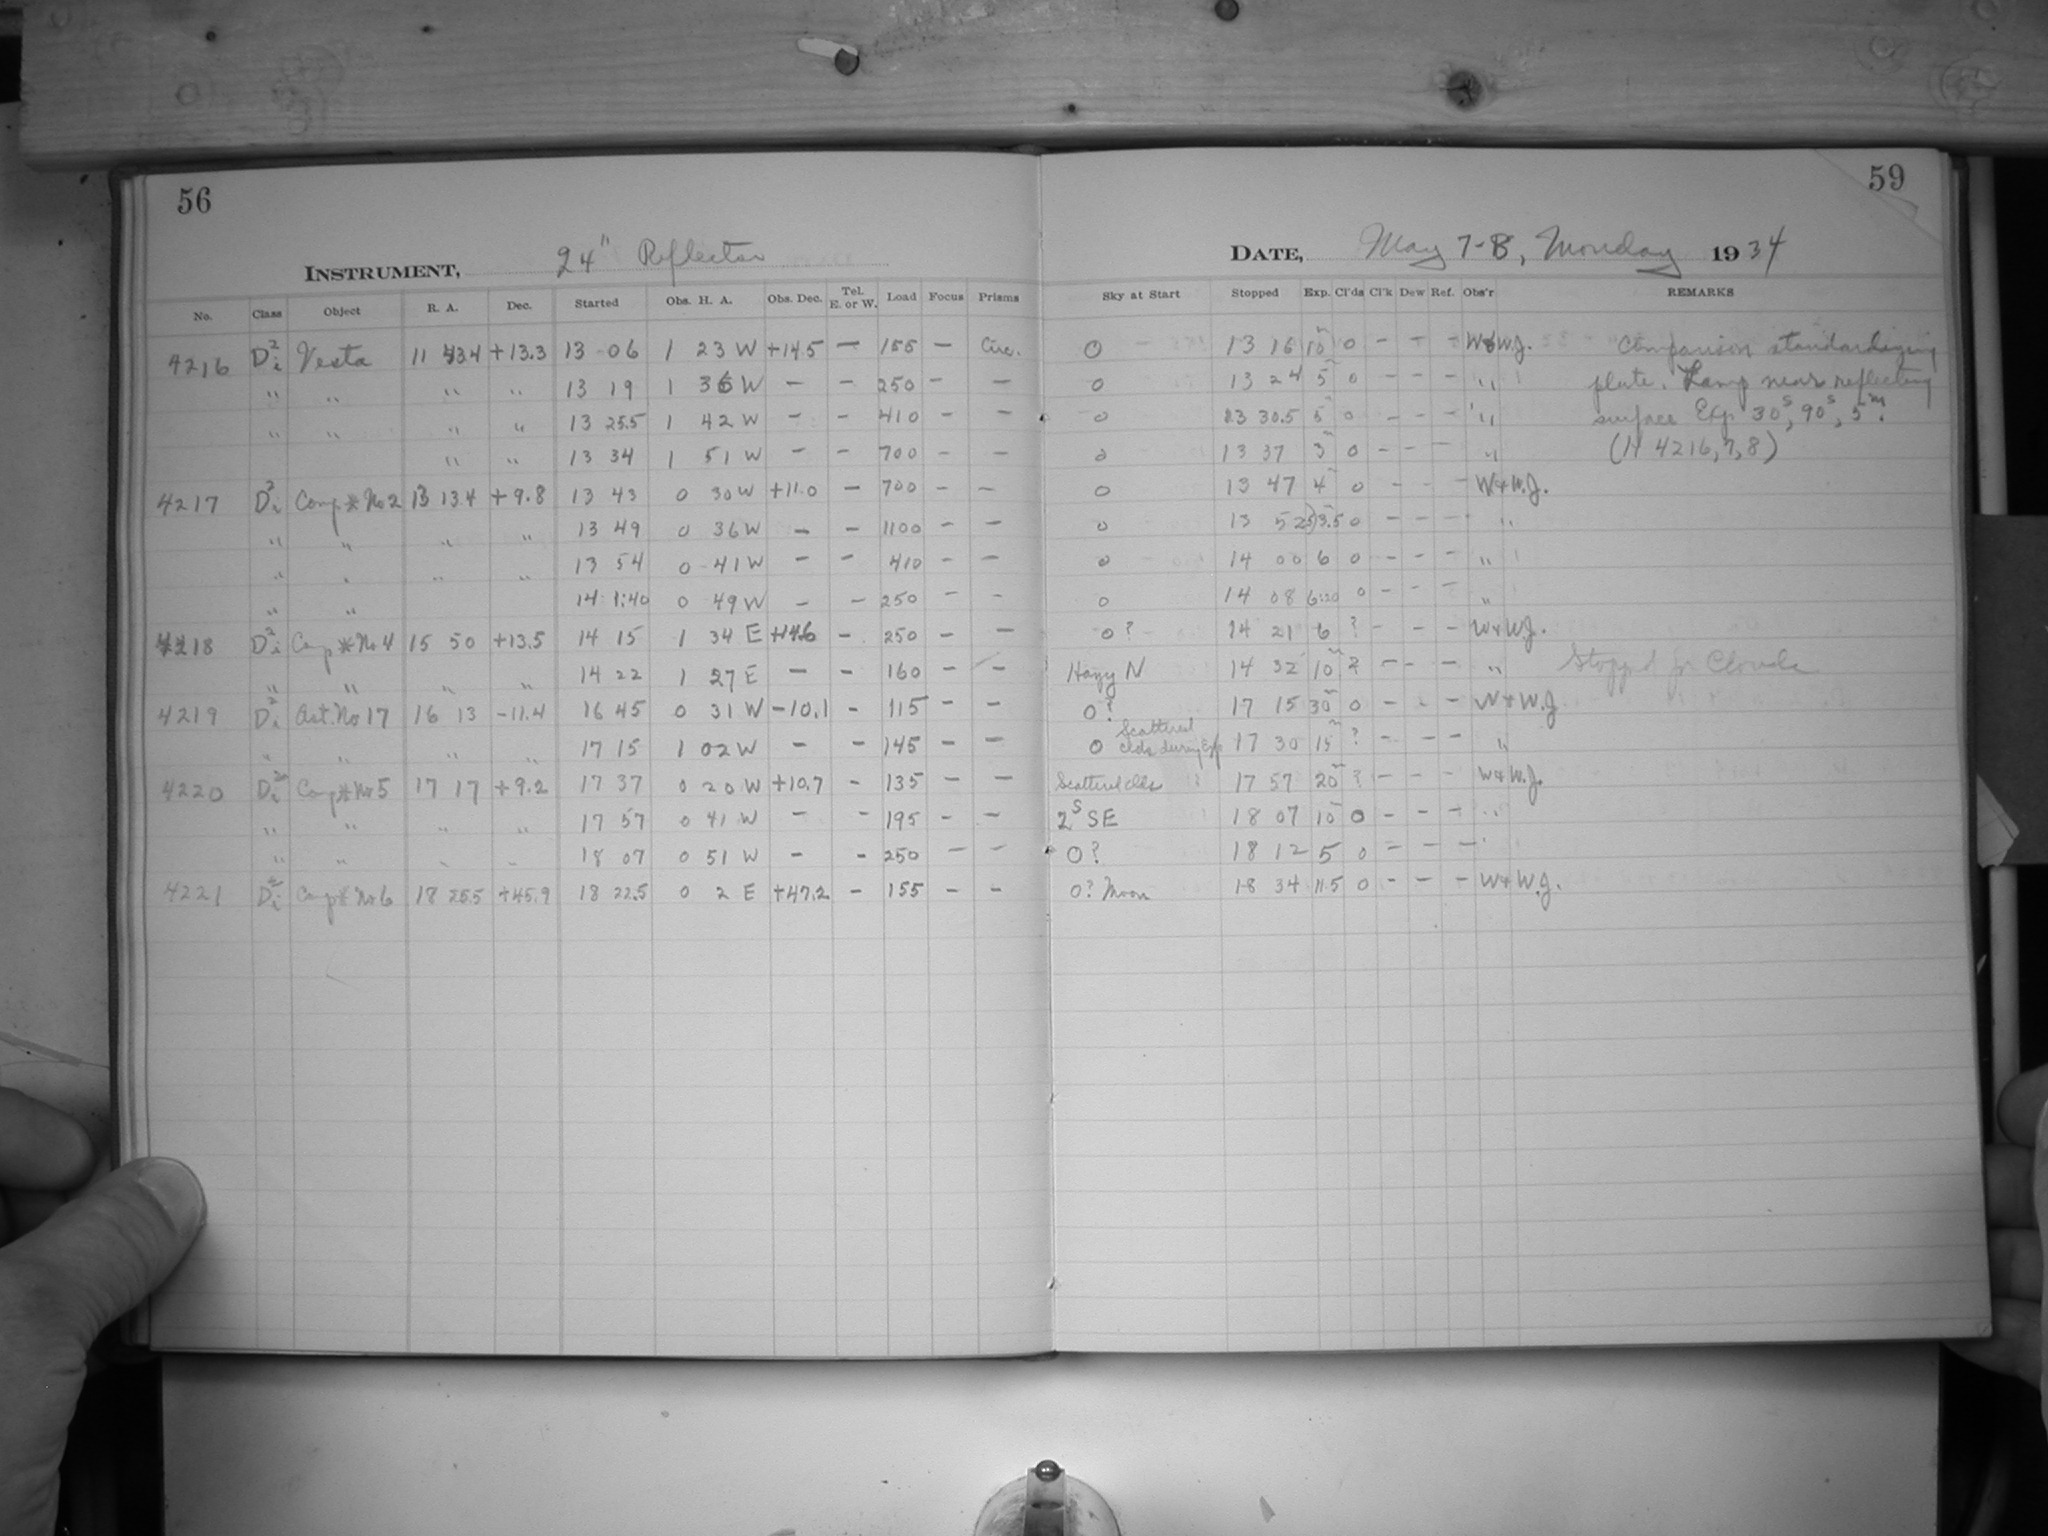 56
59
INSTRUMENT, 24" Reflector
DATE, May 7-8, Monday 1934
No. Class Object R. A. Dec. Started Obs. H. A. Obs. Dec. Tel. E. or W. Load Focus Prisms Sky at Start Stopped Exp. Cl'ds Cl'k Dew Ref. Obs'r REMARKS
4216 D²i Vesta 11 43.4 +13.3 13 06 1 23 W +14.5 — 155 — Circ. 0 13 16 10ᵐ 0 - - - W&W.J. Comparison standardizing
" " " " 13 19 1 36 W — — 250 — — 0 13 24 5 0 - - - " plate. Lamp near reflecting
" " " " 13 25.5 1 42 W — — 410 — — 0 13 30.5 5 0 - - - " surface Exp 30ˢ, 90ˢ, 5ᵐ.
" " 13 34 1 51 W — — 700 — — 0 13 37 3 0 - - - " (It 4216, 7, 8)
4217 D²i Comp * No 2 13 13.4 +9.8 13 43 0 30 W +11.0 — 700 — — 0 13 47 4 0 - - - W&W.J.
" " " " 13 49 0 36 W — — 1100 — — 0 13 52.5 3.5 0 - - - "
" " " " 13 54 0 41 W — — 410 — — 0 14 00 6 0 - - - "
" " 14 1:40 0 49 W — — 250 — — 0 14 08 6:20 0 - - - "
4218 D²i Comp * No 4 15 50 +13.5 14 15 1 34 E +14.6 — 250 — — 0? 14 21 6 ? - - - W&W.J.
" " " " 14 22 1 27 E — — 160 — — Hazy N 14 32 10ᵐ ? - - - " Stopped for Clouds
4219 D²i Ast. No 17 16 13 -11.4 16 45 0 31 W -10.1 — 115 — — 0? 17 15 30 0 - - - W&W.J
" " " " 17 15 1 02 W — — 145 — — 0 Scattered clds during Exp 17 30 15 ? - - - "
4220 D²i Comp * No 5 17 17 +9.2 17 37 0 20 W +10.7 — 135 — — Scattered clds 17 57 20 ? - - - W&W.J.
" " " " 17 57 0 41 W — — 195 — — 2ˢ SE 18 07 10 0 - - - "
" " " " 18 07 0 51 W — — 250 — — 0? 18 12 5 0 - - - "
4221 D²i Comp * No 6 18 25.5 +45.9 18 22.5 0 2 E +47.2 — 155 — — 0? Moon 18 34 11.5 0 - - - W&W.J.